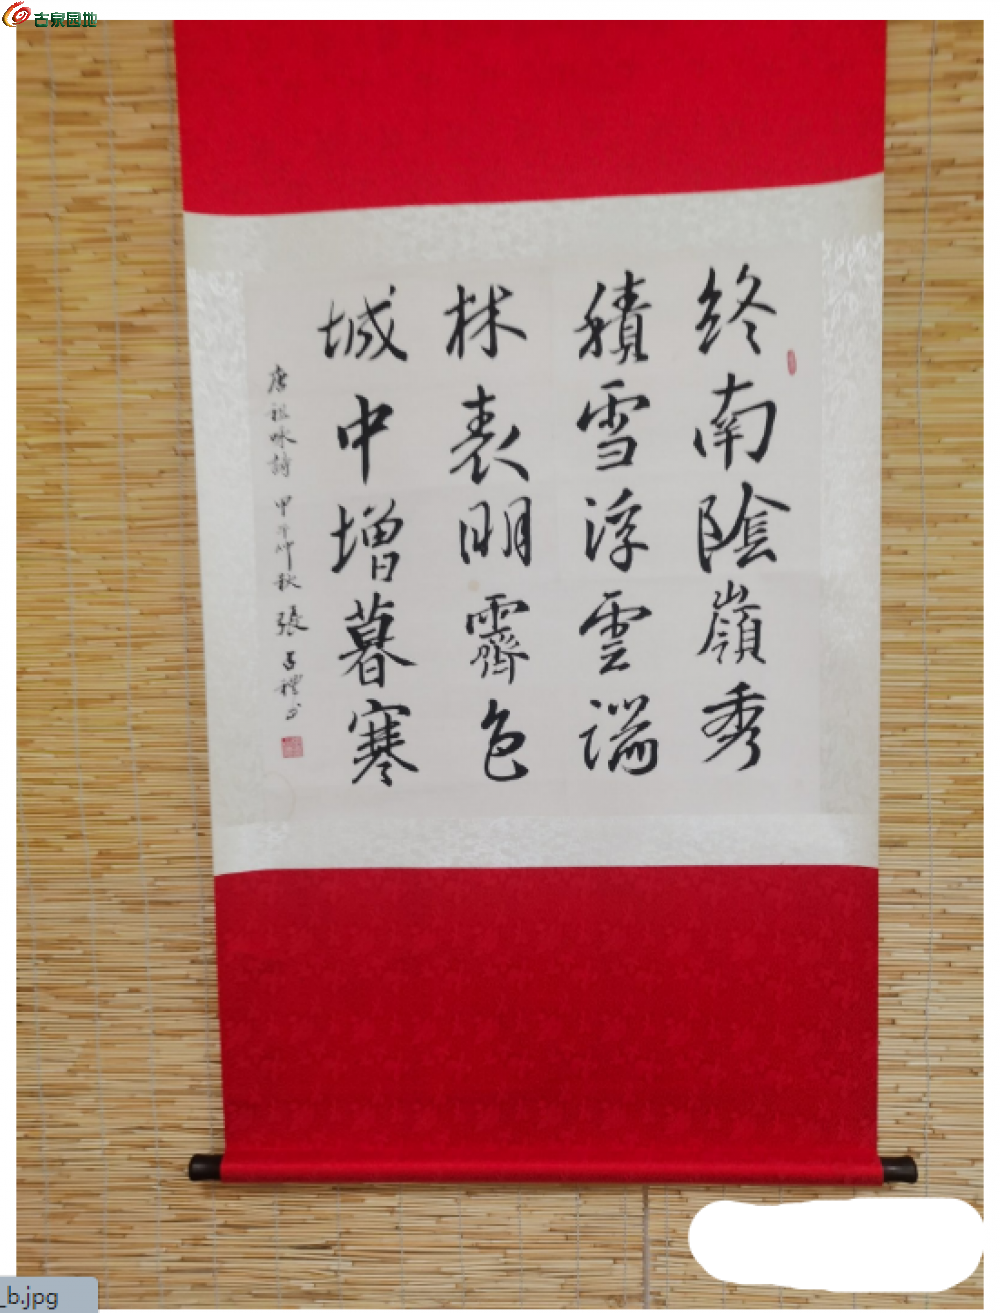 古泉园地
終南陰嶺秀
積雪浮雲端
林表明霽色
城中增暮寒
唐祖咏詩 甲午仲秋 張禮
_b.jpg